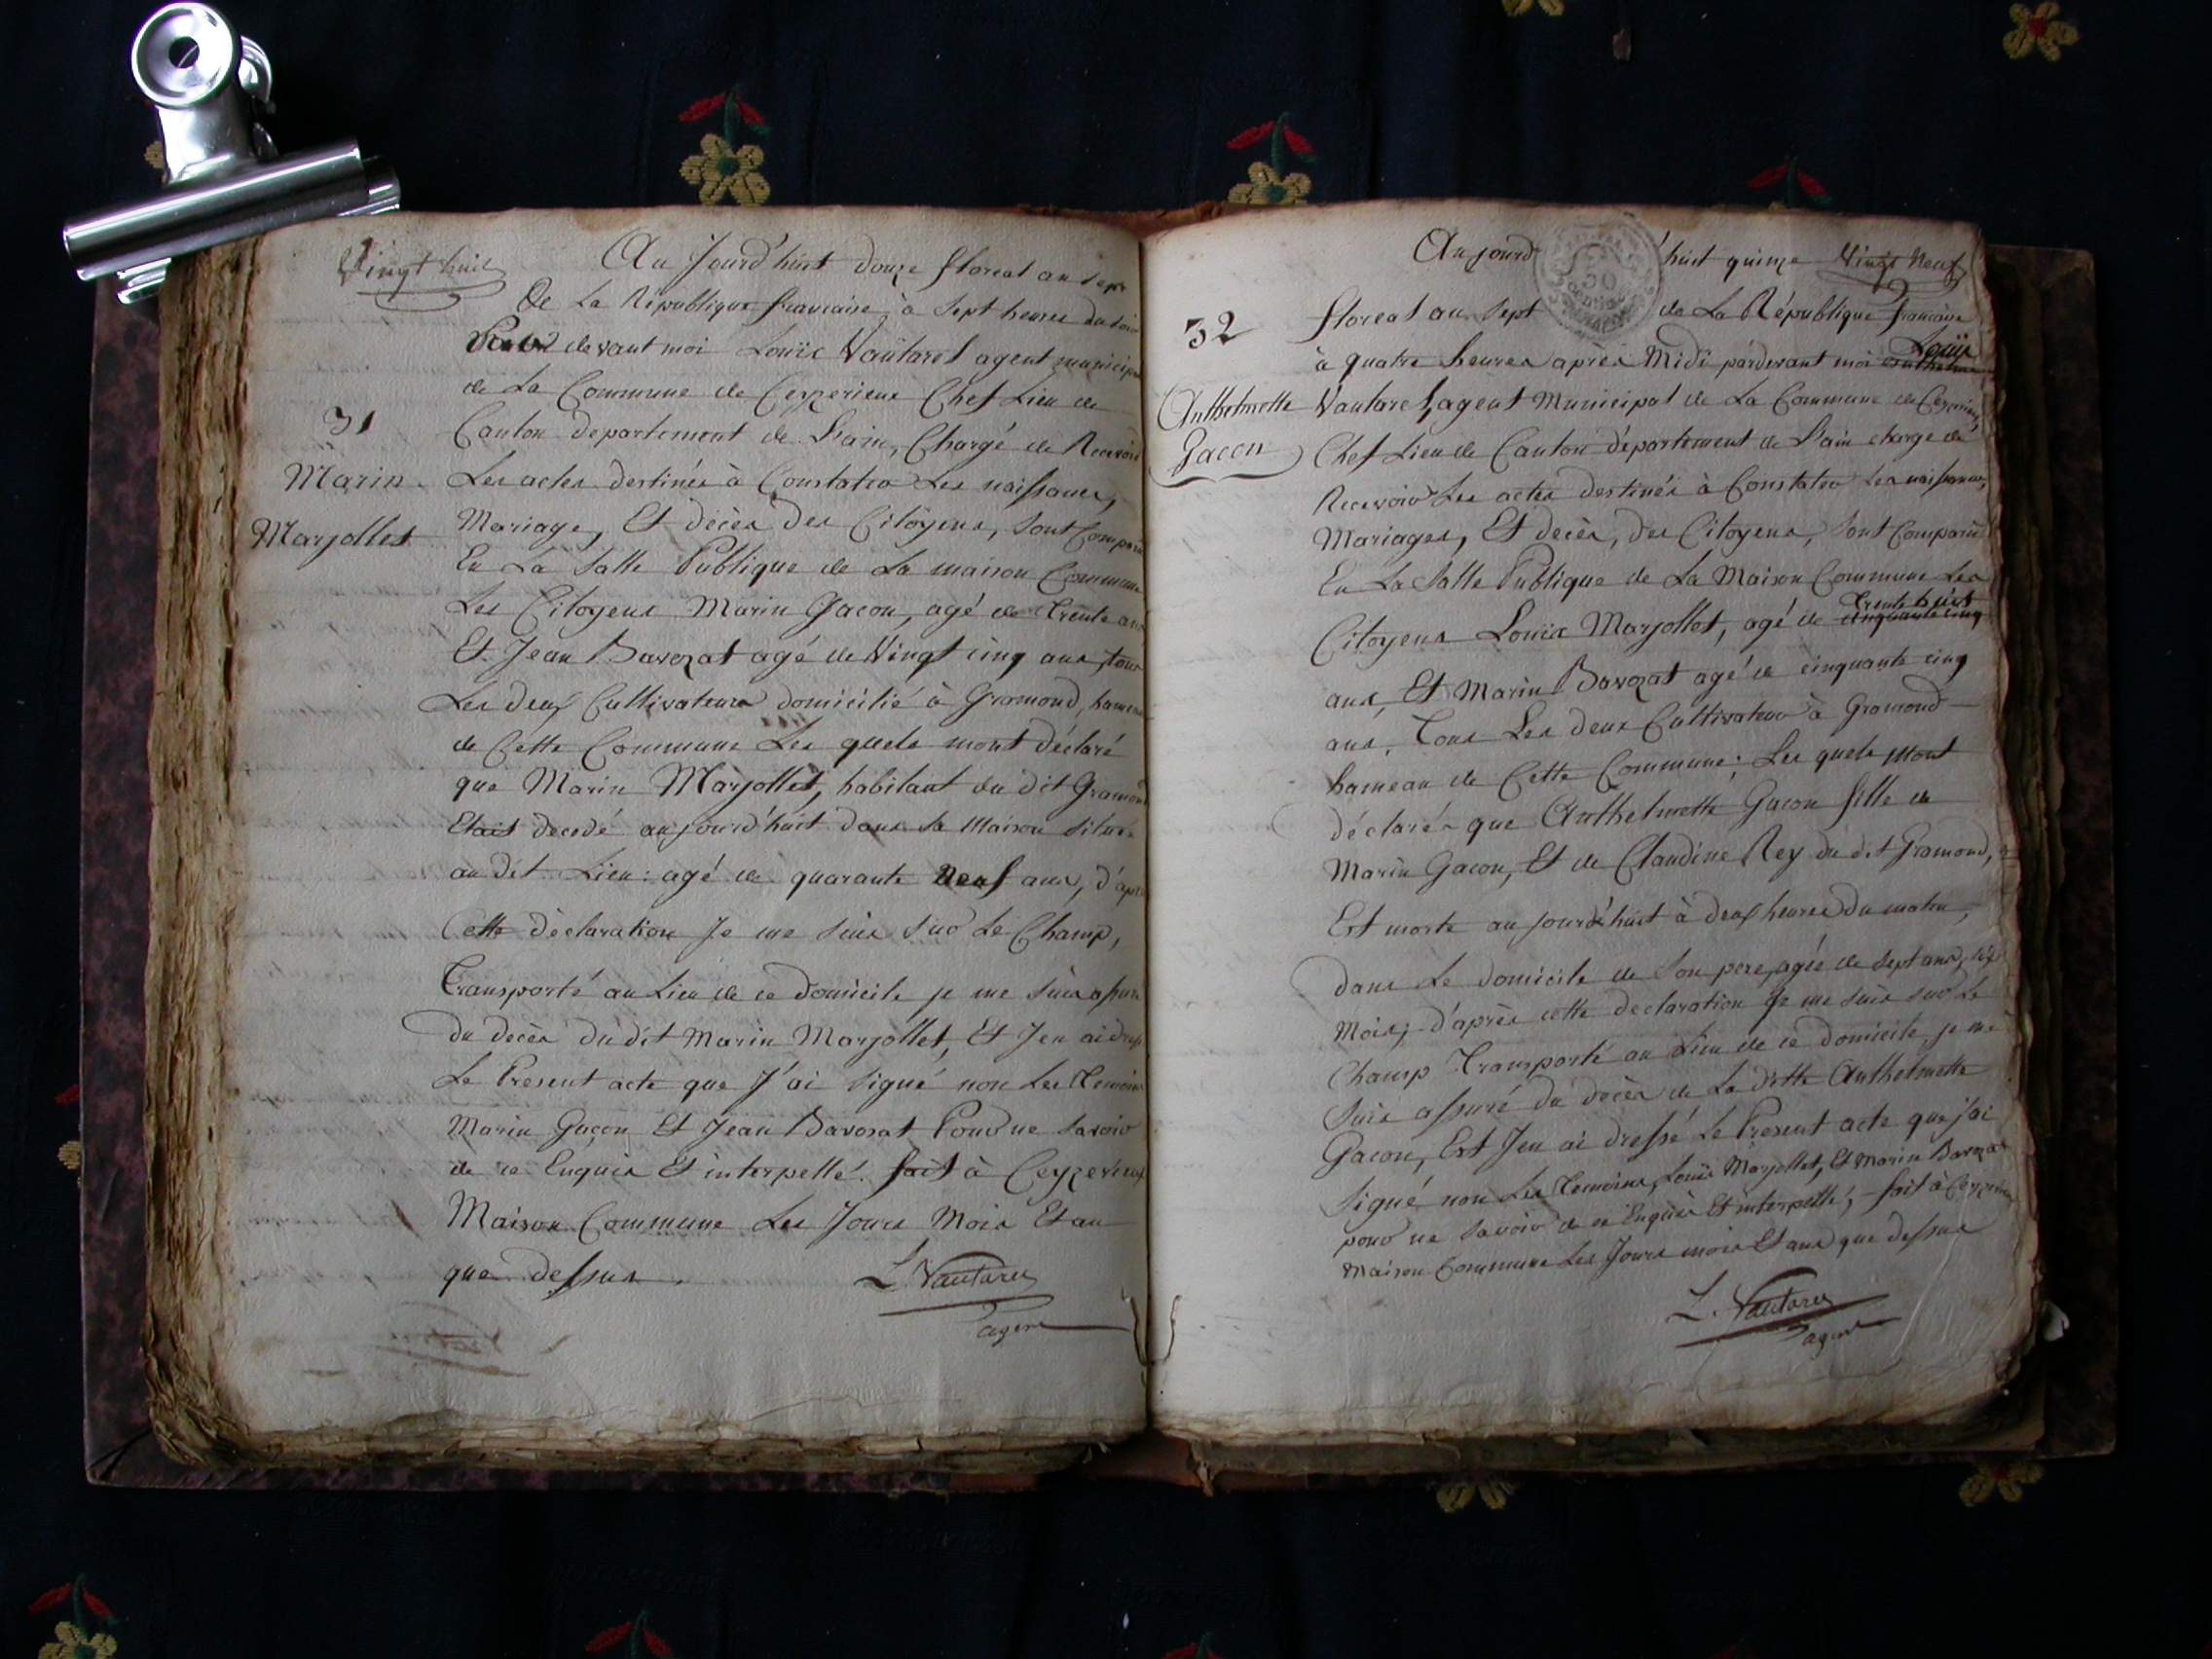 Vingt huit
Au Jourd'huit douze floreal an sept
De La Republique francaise, à sept heures du soir
devant moi Louis Vautaret agent municipal
de La Commune de Ceyzerieux Chef Lieu de
31
Canton departement de L'ain, Chargé de Recevoir
Marin
Les actes destinés à Constater Les naissances,
Marjollet
Mariage, Et décès Des Citoyens, sont Comparu
En La Salle Publique de La maison Commune
Les Citoyens Marin Gacon, agé de Trente ans
Et Jean Bavozat agé de Vingt cinq ans, tous
Les deux Cultivateurs domicilié à Gramond, hameau
de Cette Commune Les quels mont déclaré
que Marin Marjollet, habitant du dit Gramond
Etait decedé aujourd'huit dans sa Maison située
au dit Lieu: agé de quarante Neuf ans, d'après
Cette déclaration Je me suis sur Le Champ,
Transporté au Lieu de ce Domicile je me suis assuré
du decès du dit Marin Marjollet, Et J'en ai dressé
Le Present acte que J'ai signé non Les Temoins
Marin Gacon Et Jean Bavozat Pour ne savoir
de ce Enquis Et interpellé. fait à Ceyzerieux
Maison Commune Les Jours Mois Et an
que dessus.
L. Vautaret
agent
Aujourd'huit quinze
Vingt Neuf
32
floreal an sept de La République francaise
à quatre heures après Midi pardevant moi Louis
Anthelmette
Gacon
Vautaret, agent Municipal de La Commune de Ceyzerieux,
Chef Lieu de Canton département de L'ain chargé de
Recevoir Les actes destinés à Constater Les naissances,
Mariages, Et decès, des Citoyens, sont Comparu
En La Salle Publique de La Maison Commune Les
Citoyens Louis Marjollet, agé de cinquante cinq Trente huit
ans, Et Marin Bavozat agé de cinquante cinq
ans, Tous Les deux Cultivateur à Gramond
hameau de Cette Commune; Les quels mont
déclarés que Anthelmette Gacon fille de
Marin Gacon, Et de Claudine Rey du dit Gramond,
Est morte au jourd'huit à deux heures du matin,
dans Le domicile de Son pere, agée de sept ans, six
Mois; d'après cette declaration je me suis sur Le
Champ Transporté au Lieu de ce domicile, je me
suis assuré du decès de La ditte Anthelmette
Gacon, Est J'en ai dressé Le Present acte que j'ai
Signé non Les Temoins, Louis Marjollet, Et Marin Bavozat
pour ne savoir de ce Enquis Et interpellé, fait à Ceyzerieux
Maison Commune Les Jours mois Et ans que dessus
L. Vautaret
agent